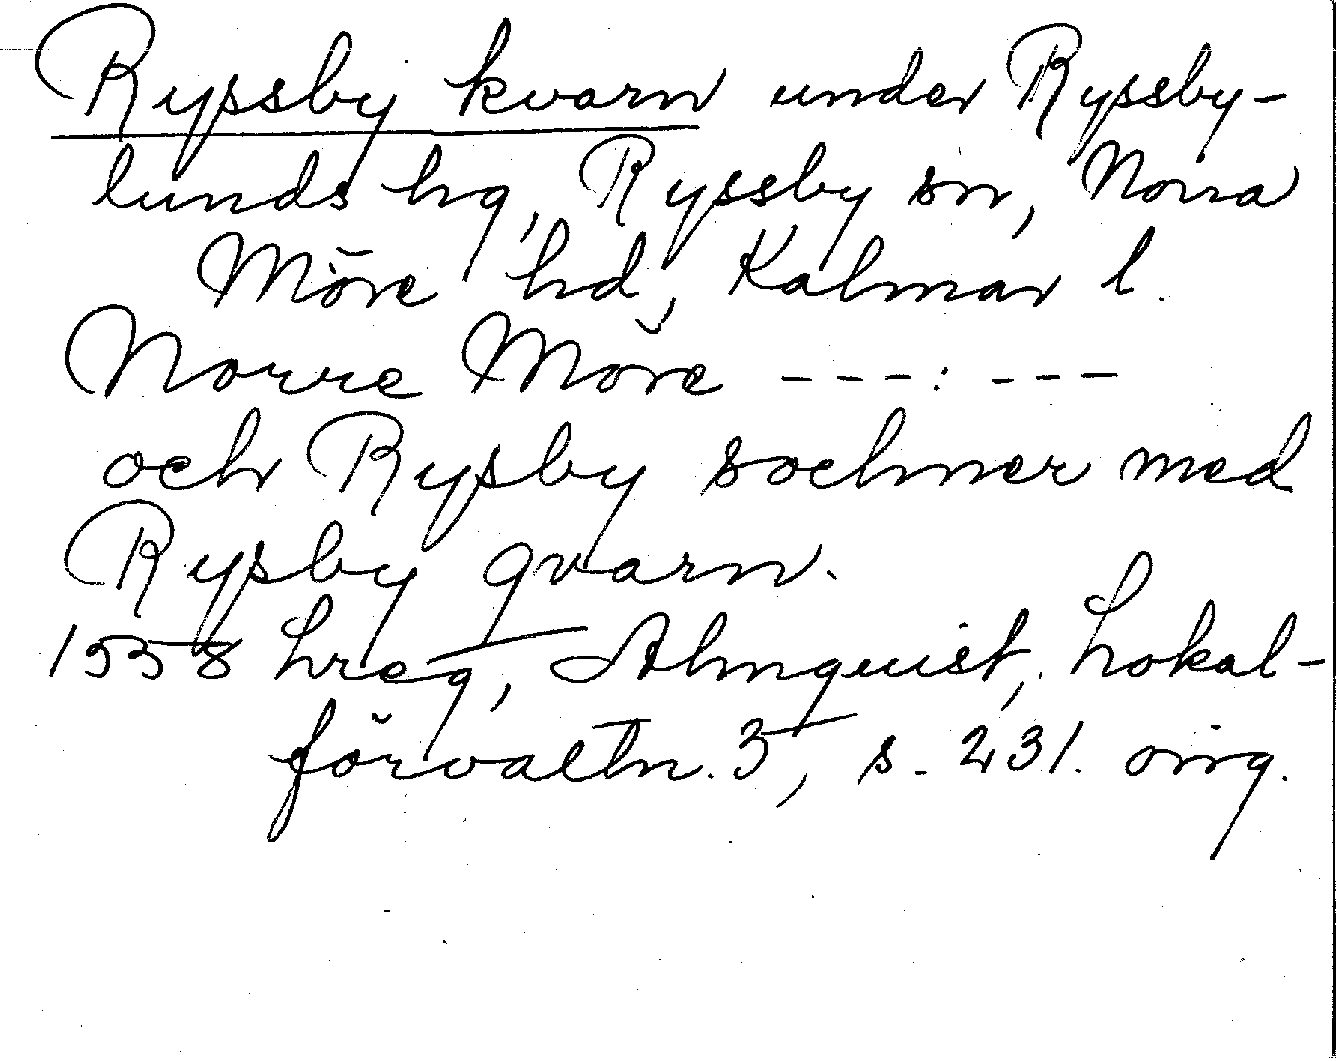 Ryssby kvarn under Ryssby-
lunds hg, Ryssby sn, Norra
Möre hd, Kalmar l.
Norre Möre ---:---
och Rysby sochner med
Rysby qvarn.
1558 Lreg, Almquist, Lokal-
förvaltn. 3, s. 231. orig.